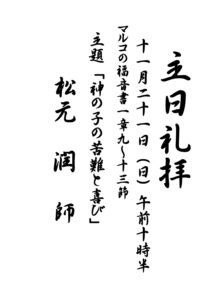 主日礼拝
十一月二十一日（日）午前十時半
マルコの福音書一章九～十三節
主題「神の子の苦難と喜び」
松元潤師